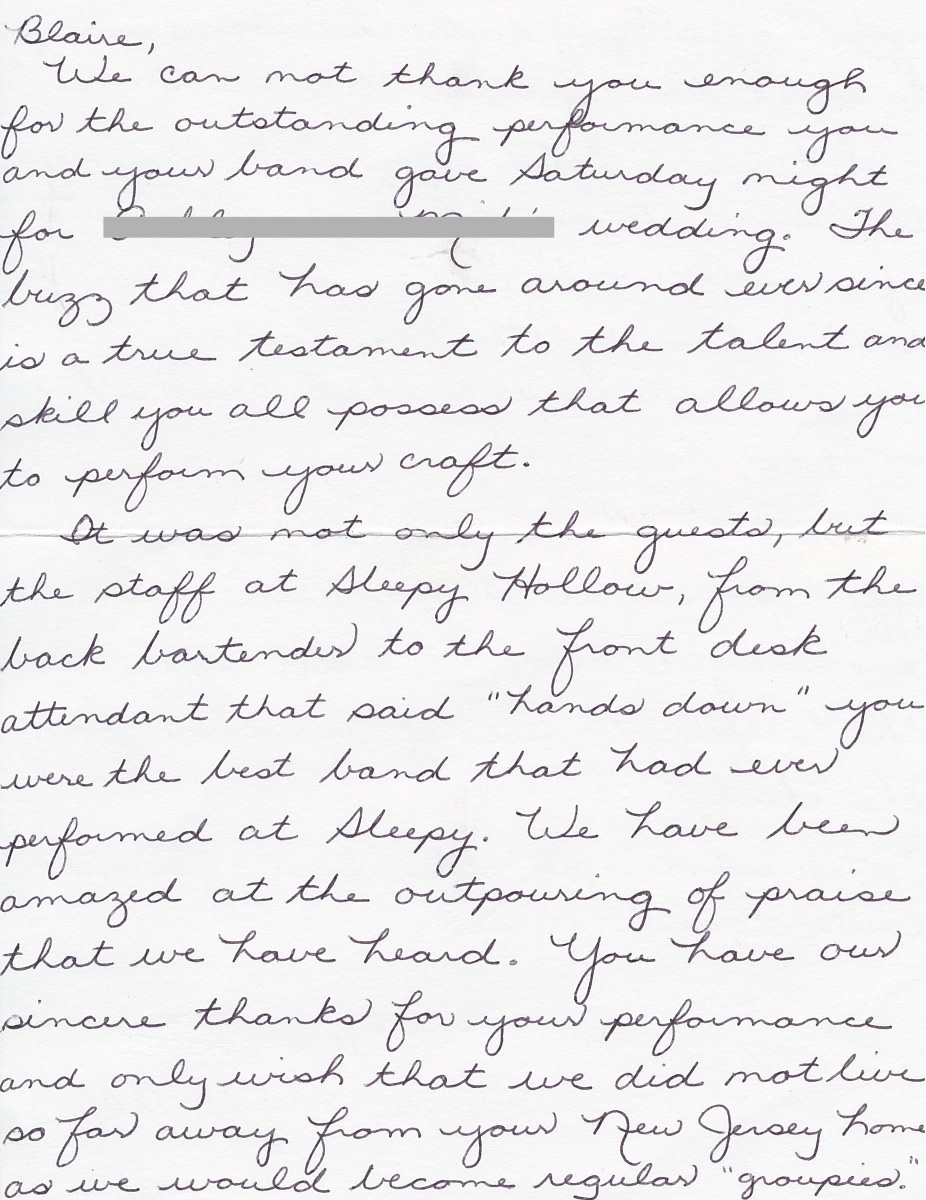 Blaire,
We can not thank you enough
for the outstanding performance you
and your band gave Saturday night
for wedding. The
buzz that has gone around ever since
is a true testament to the talent and
skill you all possess that allows you
to perform your craft.
It was not only the guests, but
the staff at Sleepy Hollow, from the
back bartender to the front desk
attendant that said "hands down" you
were the best band that had ever
performed at Sleepy. We have been
amazed at the outpouring of praise
that we have heard. You have our
sincere thanks for your performance
and only wish that we did not live
so far away from your New Jersey home
as we would become regular "groupies."